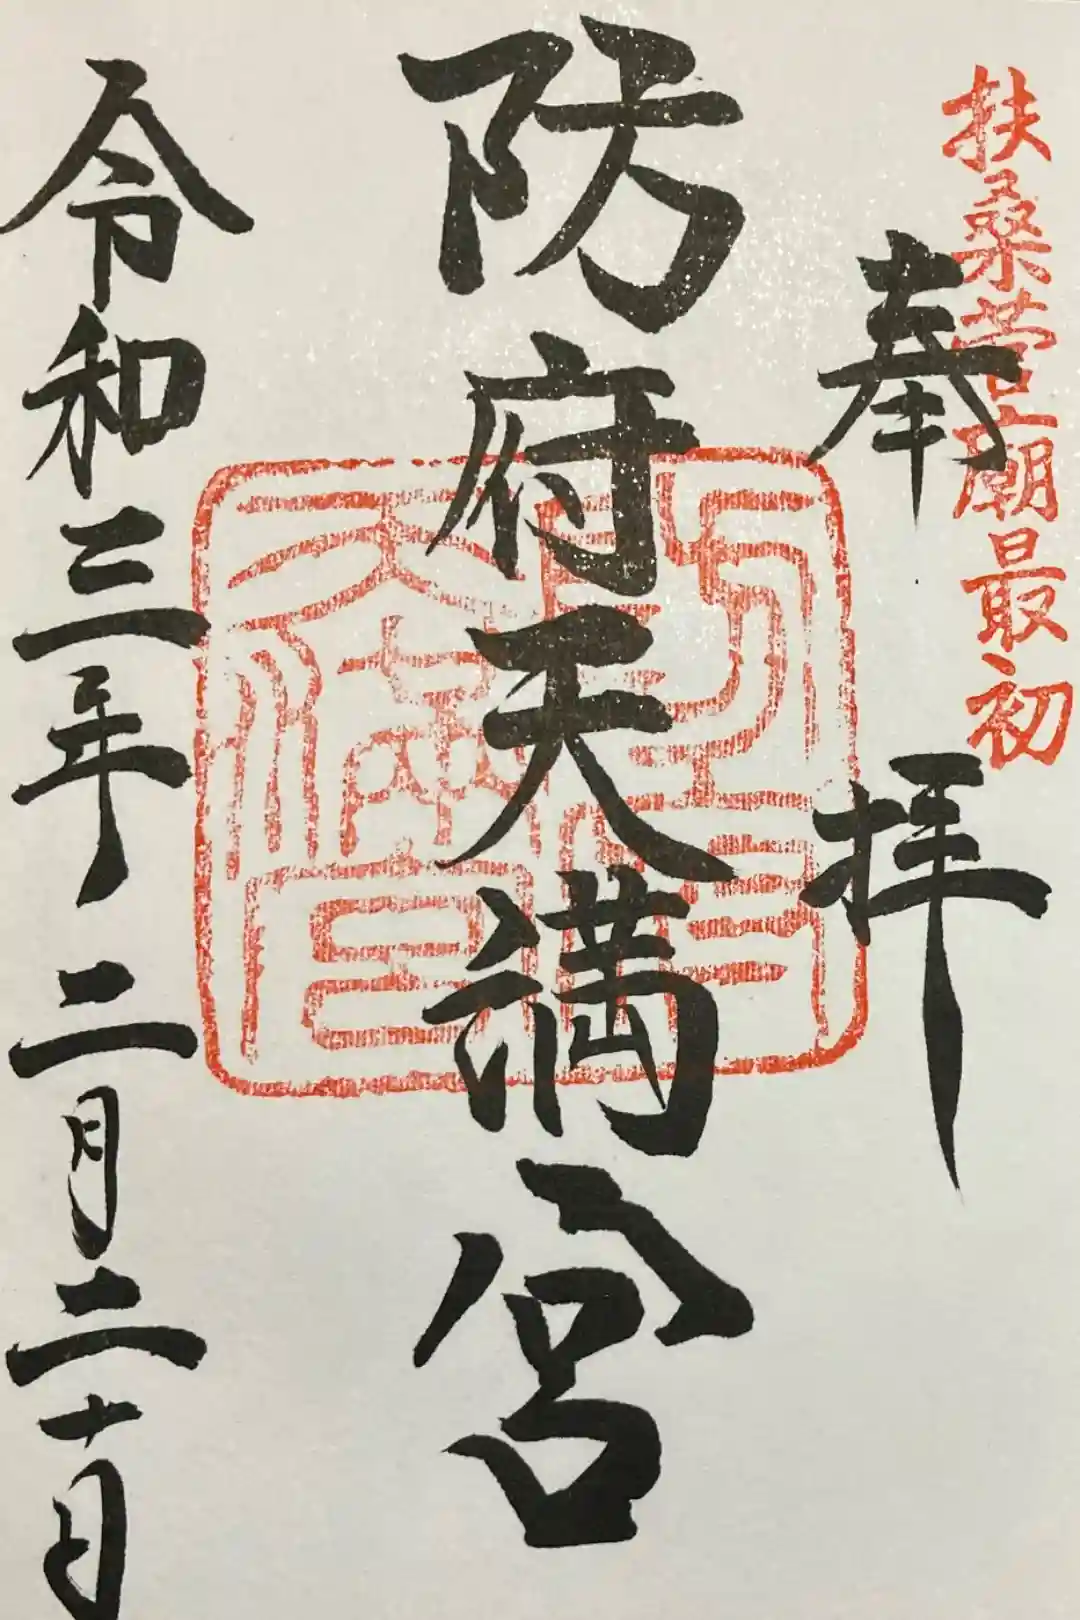 扶桑菅廟最初
奉拝
防府天満宮
令和三年二月二十日